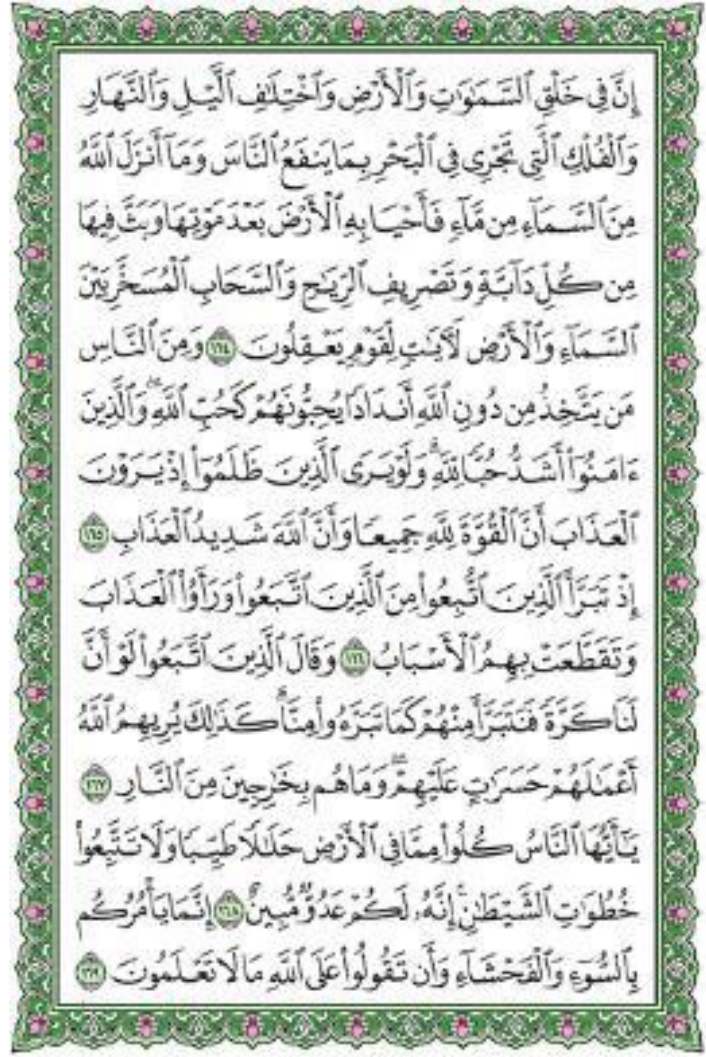 إِنَّ فِي خَلْقِ ٱلسَّمَٰوَٰتِ وَٱلْأَرْضِ وَٱخْتِلَٰفِ ٱلَّيْلِ وَٱلنَّهَارِ
وَٱلْفُلْكِ ٱلَّتِي تَجْرِي فِي ٱلْبَحْرِ بِمَا يَنفَعُ ٱلنَّاسَ وَمَآ أَنزَلَ ٱللَّهُ
مِنَ ٱلسَّمَآءِ مِن مَّآءٍ فَأَحْيَا بِهِ ٱلْأَرْضَ بَعْدَ مَوْتِهَا وَبَثَّ فِيهَا
مِن كُلِّ دَآبَّةٍ وَتَصْرِيفِ ٱلرِّيَٰحِ وَٱلسَّحَابِ ٱلْمُسَخَّرِ بَيْنَ
ٱلسَّمَآءِ وَٱلْأَرْضِ لَأٓيَٰتٍ لِّقَوْمٍ يَعْقِلُونَ ١٦٤ وَمِنَ ٱلنَّاسِ
مَن يَتَّخِذُ مِن دُونِ ٱللَّهِ أَندَادًا يُحِبُّونَهُمْ كَحُبِّ ٱللَّهِ ۖ وَٱلَّذِينَ
ءَامَنُوٓا۟ أَشَدُّ حُبًّا لِّلَّهِ ۗ وَلَوْ يَرَى ٱلَّذِينَ ظَلَمُوٓا۟ إِذْ يَرَوْنَ
ٱلْعَذَابَ أَنَّ ٱلْقُوَّةَ لِلَّهِ جَمِيعًا وَأَنَّ ٱللَّهَ شَدِيدُ ٱلْعَذَابِ ١٦٥
إِذْ تَبَرَّأَ ٱلَّذِينَ ٱتُّبِعُوا۟ مِنَ ٱلَّذِينَ ٱتَّبَعُوا۟ وَرَأَوُا۟ ٱلْعَذَابَ
وَتَقَطَّعَتْ بِهِمُ ٱلْأَسْبَابُ ١٦٦ وَقَالَ ٱلَّذِينَ ٱتَّبَعُوا۟ لَوْ أَنَّ
لَنَا كَرَّةً فَنَتَبَرَّأَ مِنْهُمْ كَمَا تَبَرَّءُوا۟ مِنَّا ۗ كَذَٰلِكَ يُرِيهِمُ ٱللَّهُ
أَعْمَٰلَهُمْ حَسَرَٰتٍ عَلَيْهِمْ ۖ وَمَا هُم بِخَٰرِجِينَ مِنَ ٱلنَّارِ ١٦٧
يَٰٓأَيُّهَا ٱلنَّاسُ كُلُوا۟ مِمَّا فِي ٱلْأَرْضِ حَلَٰلًا طَيِّبًا وَلَا تَتَّبِعُوا۟
خُطُوَٰتِ ٱلشَّيْطَٰنِ ۚ إِنَّهُۥ لَكُمْ عَدُوٌّ مُّبِينٌ ١٦٨ إِنَّمَا يَأْمُرُكُم
بِٱلسُّوٓءِ وَٱلْفَحْشَآءِ وَأَن تَقُولُوا۟ عَلَى ٱللَّهِ مَا لَا تَعْلَمُونَ ١٦٩